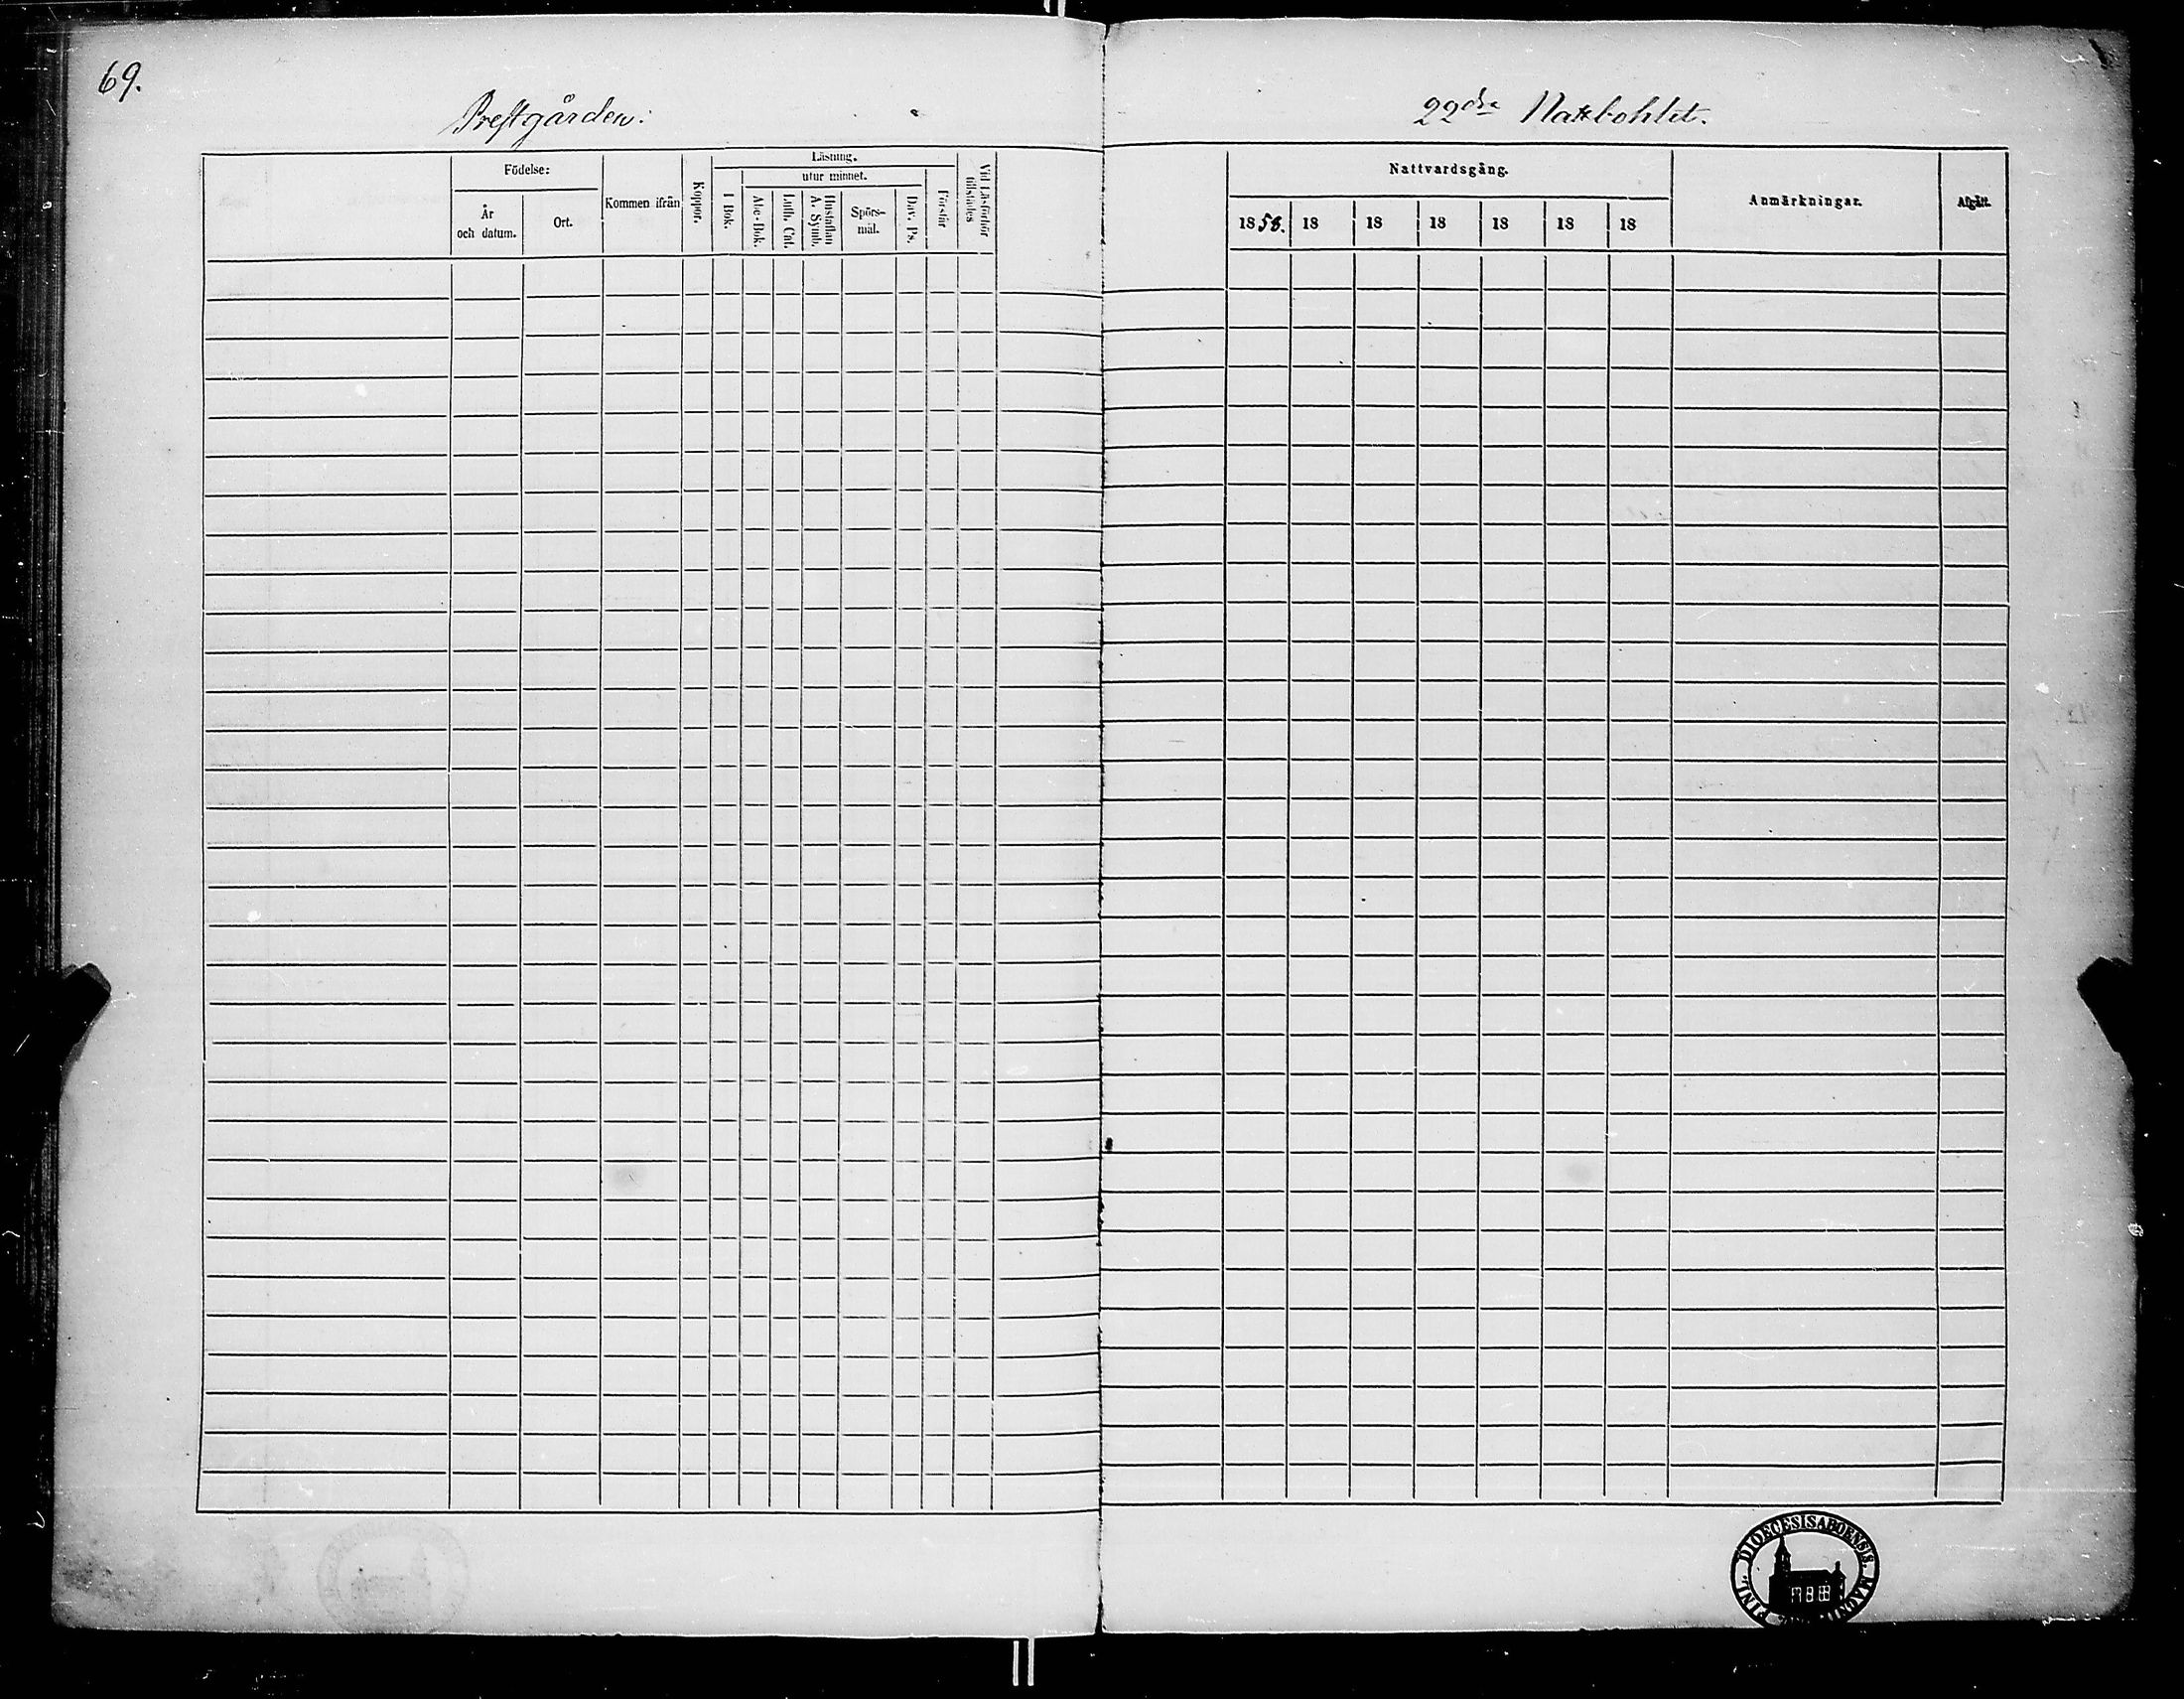 69.
Prestgården:
22dra Nattbohlet.
Födelse:
År
och datum.
Ort.
Kommen ifrån
Koppor.
Läsning.
I Bok.
utur minnet.
Abc-Bok.
Luth. Cat.
Hustaflan
A. Symb.
Spörs-
mål.
Dav. Ps.
Förstår
Vid Läsförhör
tillstädes
Nattvardsgång.
1858. 18 18 18 18 18 18
Anmärkningar.
Afgått.
DIOECESIS ABOENSIS. MAGNI FINL.